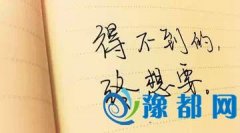 得不到的，
越想要。
豫都网